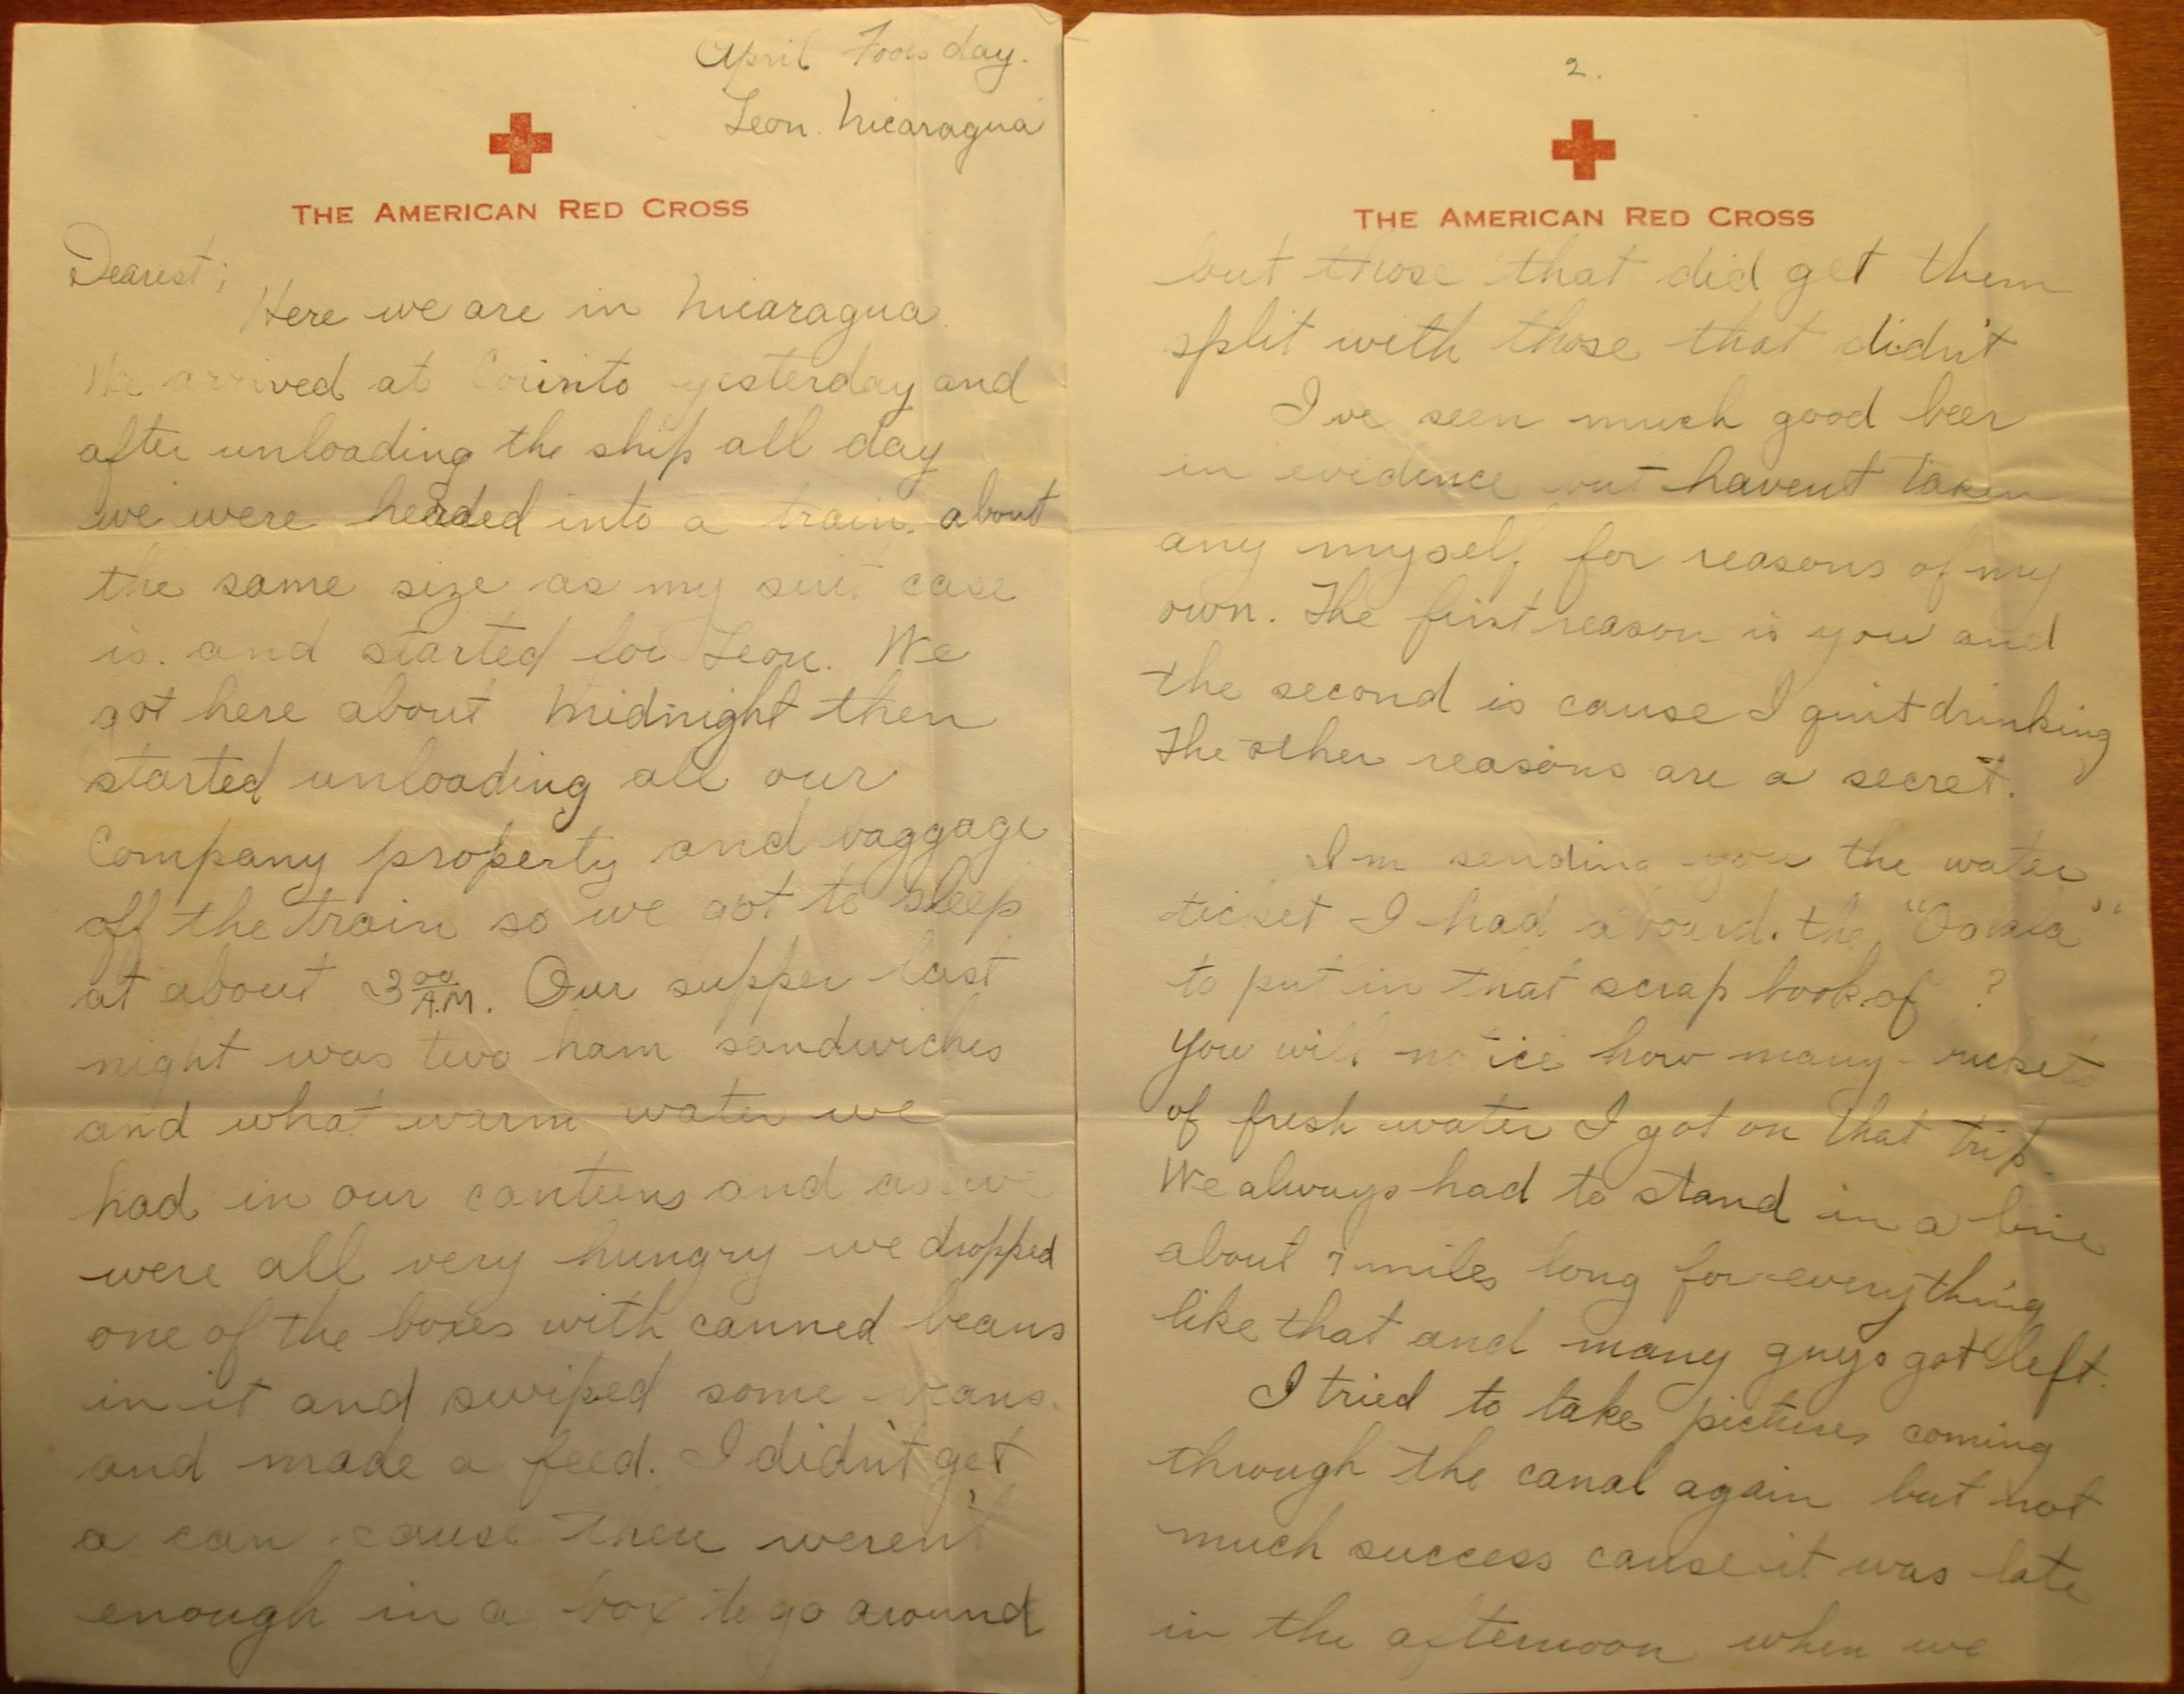 April Fools day.
Leon. Nicaragua
THE AMERICAN RED CROSS
Dearest;
Here we are in Nicaragua.
We arrived at Corinto yesterday and
after unloading the ship all day
we were headed into a train. about
the same size as my suit case
is. and started for Leon. We
got here about midnight then
started unloading all our
Company property and baggage
off the train so we got to sleep
at about 3 00 A.M. Our supper last
night was two ham sandwiches
and what warm water we
had in our canteens and as we
were all very hungry we dropped
one of the boxes with canned beans
in it and swiped some beans.
and made a feed. I didn't get
a can cause there weren't
enough in a box to go around
2.
THE AMERICAN RED CROSS
but those that did get them
split with those that didn't
I've seen much good beer
in evidence but havent taken
any myself for reasons of my
own. The first reason is you and
the second is cause I quit drinking
The other reasons are a secret.
I'm sending you the water
ticket I had aboard. the
to put in that scrap book of ?
You will notice how many buckets
of fresh water I got on that trip.
We always had to stand in a line
about 7 miles long for everything
like that and many guys got left.
I tried to take pictures coming
through the canal again but not
much success cause it was late
in the afternoon when we